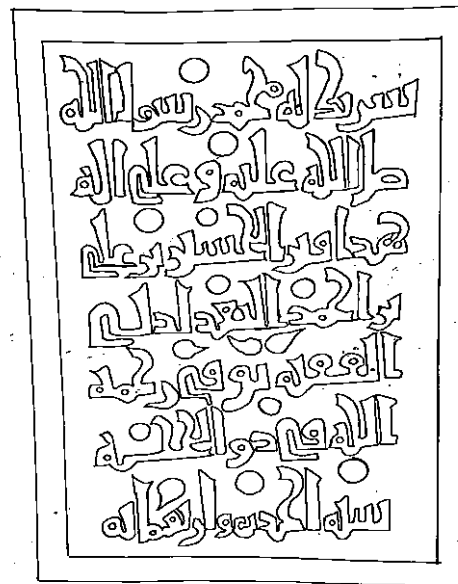 شريك له محمد رسول الله
صلى الله عليه وعلى اله
هذا قبر الحسين بن علي
بن احمد
الفقيه توفي رحمه
الله في ذو الحجة
سنه احدى واربعمائه